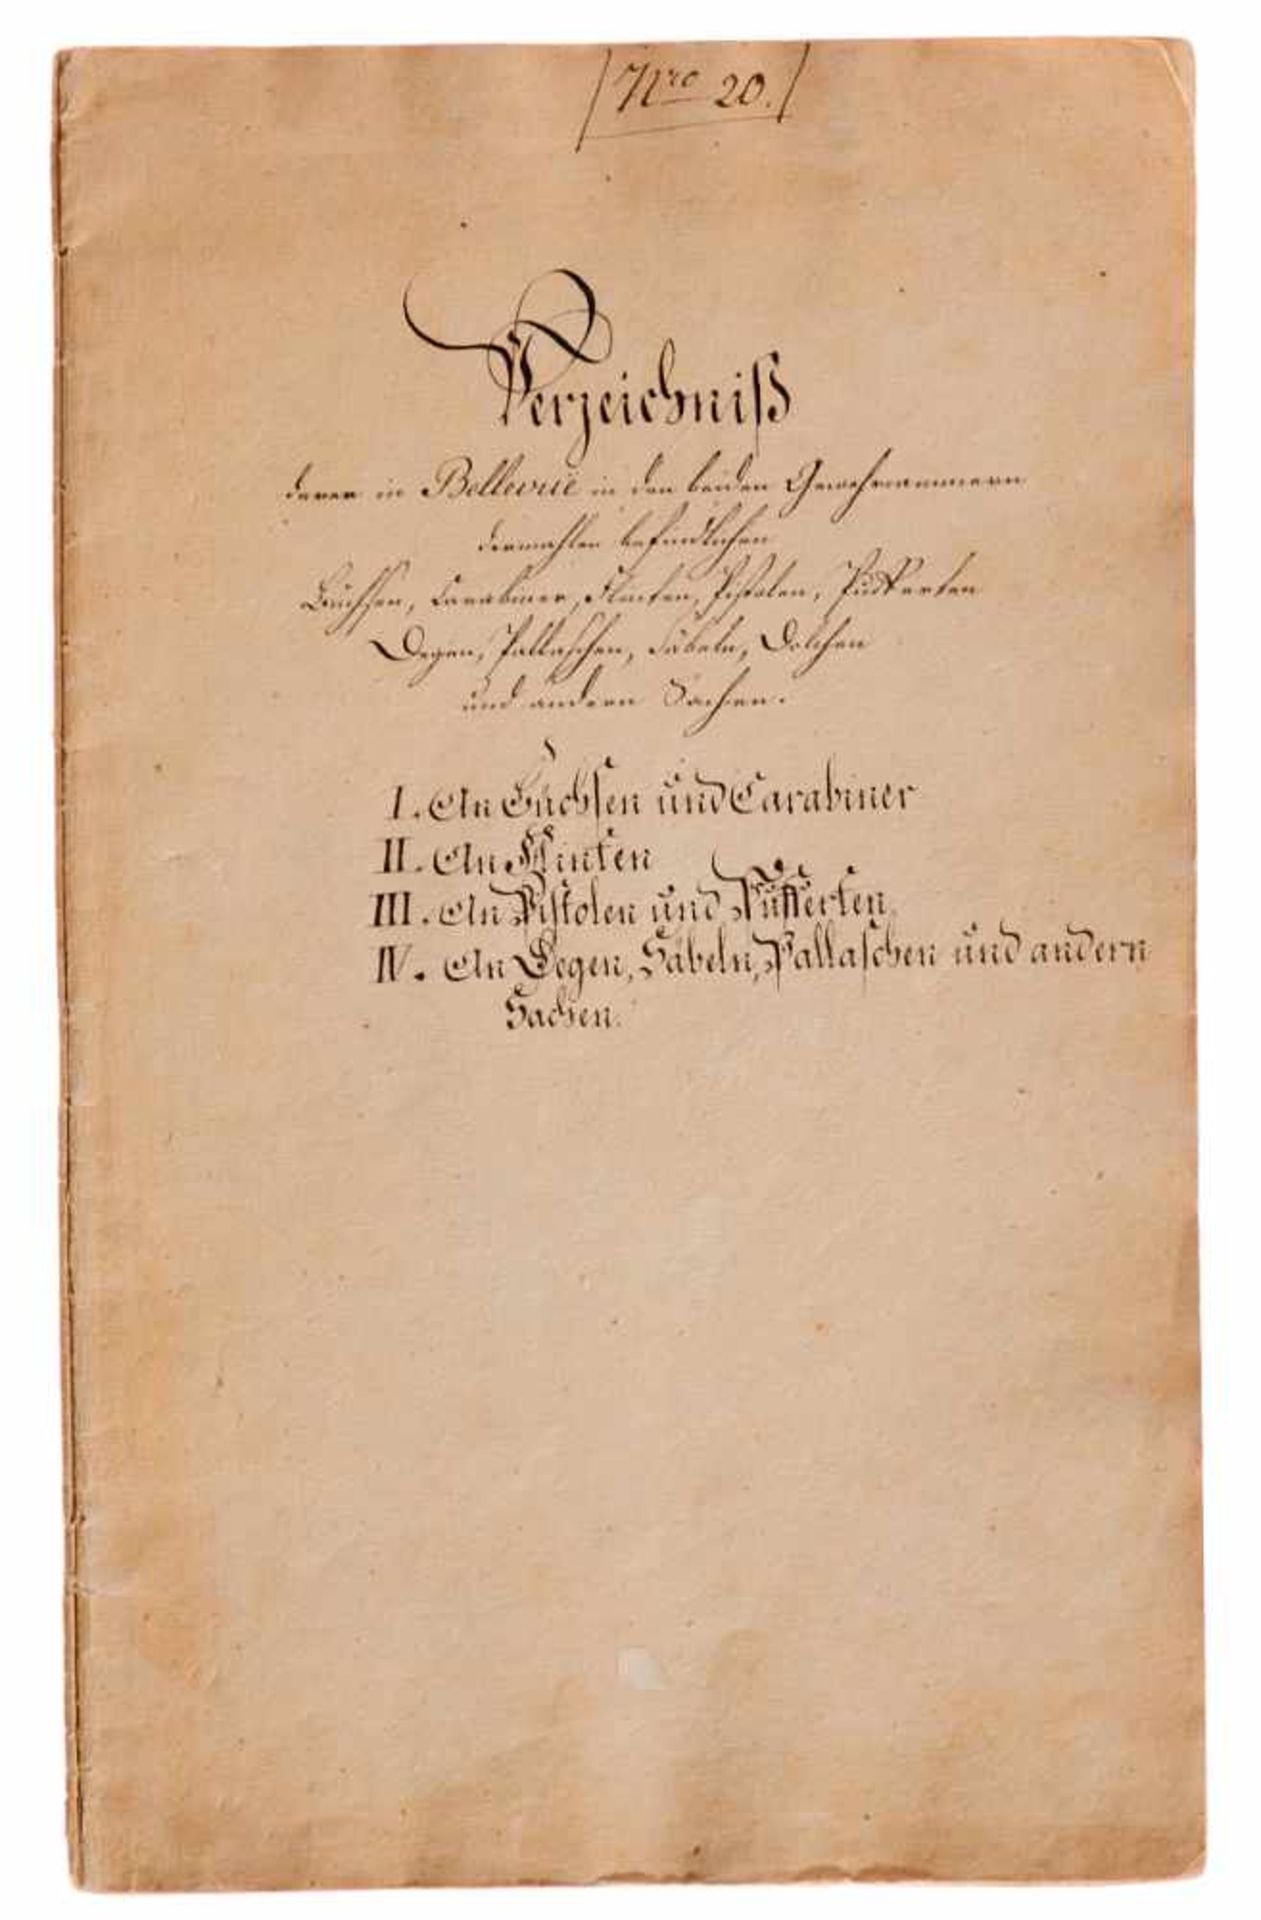 Nro 20.
Verzeichniß
derer in Bellevüe in den beiden Gewehrcammern
dermahlen befindlichen
Büchsen, Carabiner, Flinten, Pistolen, Pufferten
Degen, Pallaschen, Säbeln, Dolchen
und andern Sachen.
I. An Büchsen und Carabiner
II. An Flinten
III. An Pistolen und Püfferten.
IV. An Degen, Säbeln, Pallaschen und andern
Sachen.